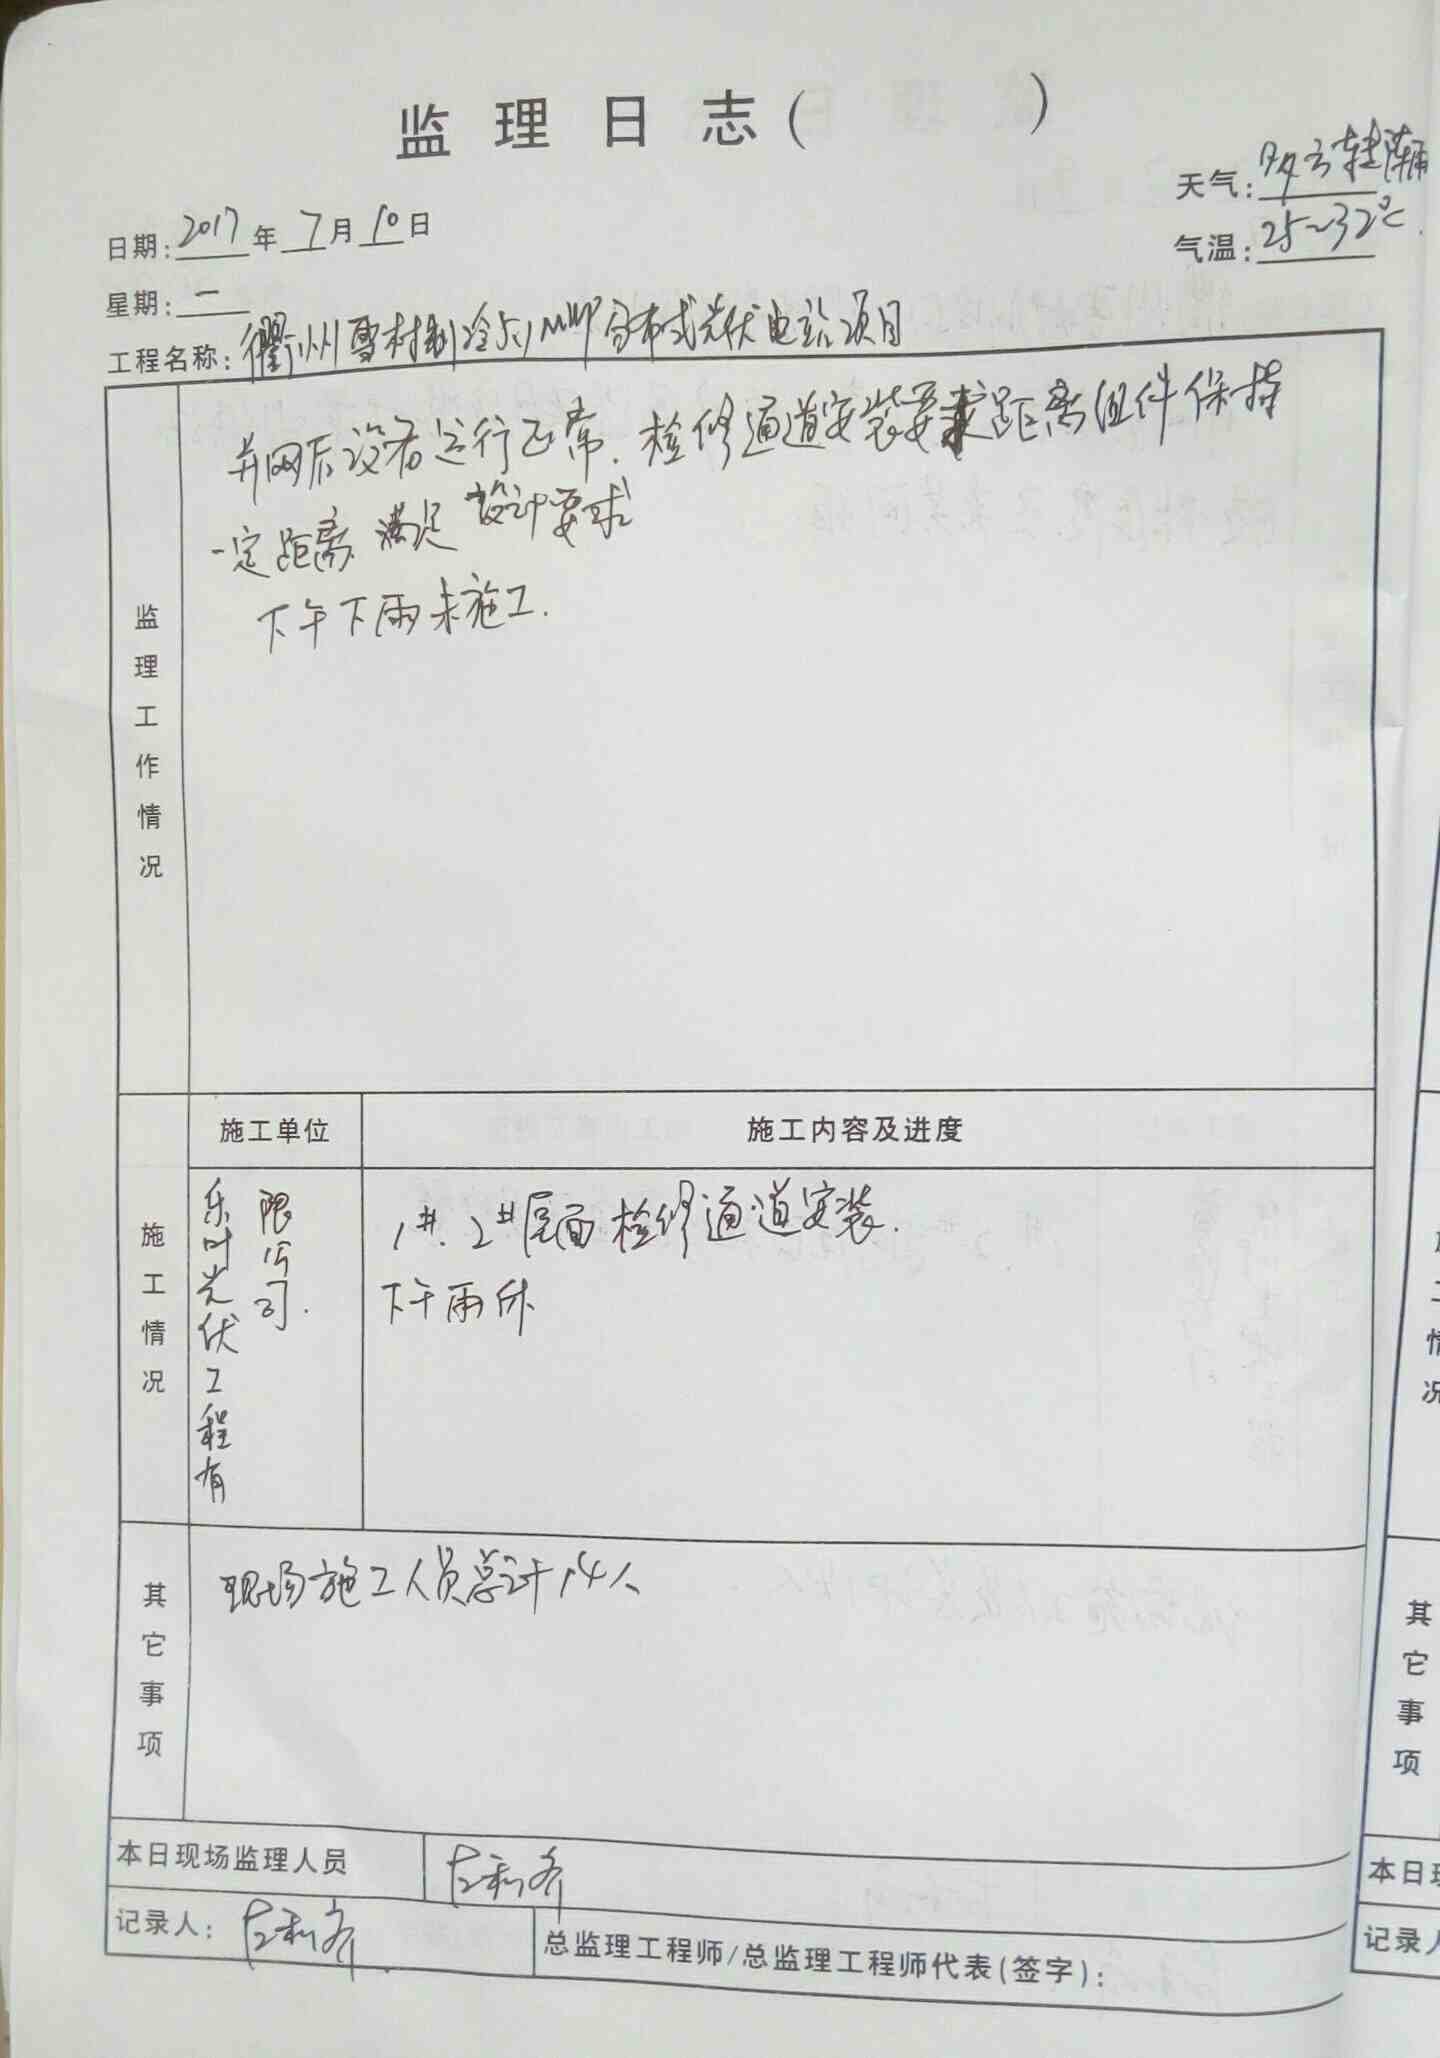 监理日志( )
天气:多云转阵雨
日期:2017年7月10日
气温:25~32℃
星期:一
工程名称:衢州雪村制冷5.1MWP分布式光伏电站项目
监理工作情况
并网后设备运行正常.检修通道安装要求距离组件保持
一定距离 满足设计要求
下午下雨未施工.
施工情况
施工单位
施工内容及进度
乐叶光伏工程有
限公司.
1#.2#屋面检修通道安装.
下午雨休
其它事项
现场施工人员总计14人
本日现场监理人员
记录人:
总监理工程师/总监理工程师代表(签字):
情况
其它事项
本日现
记录人